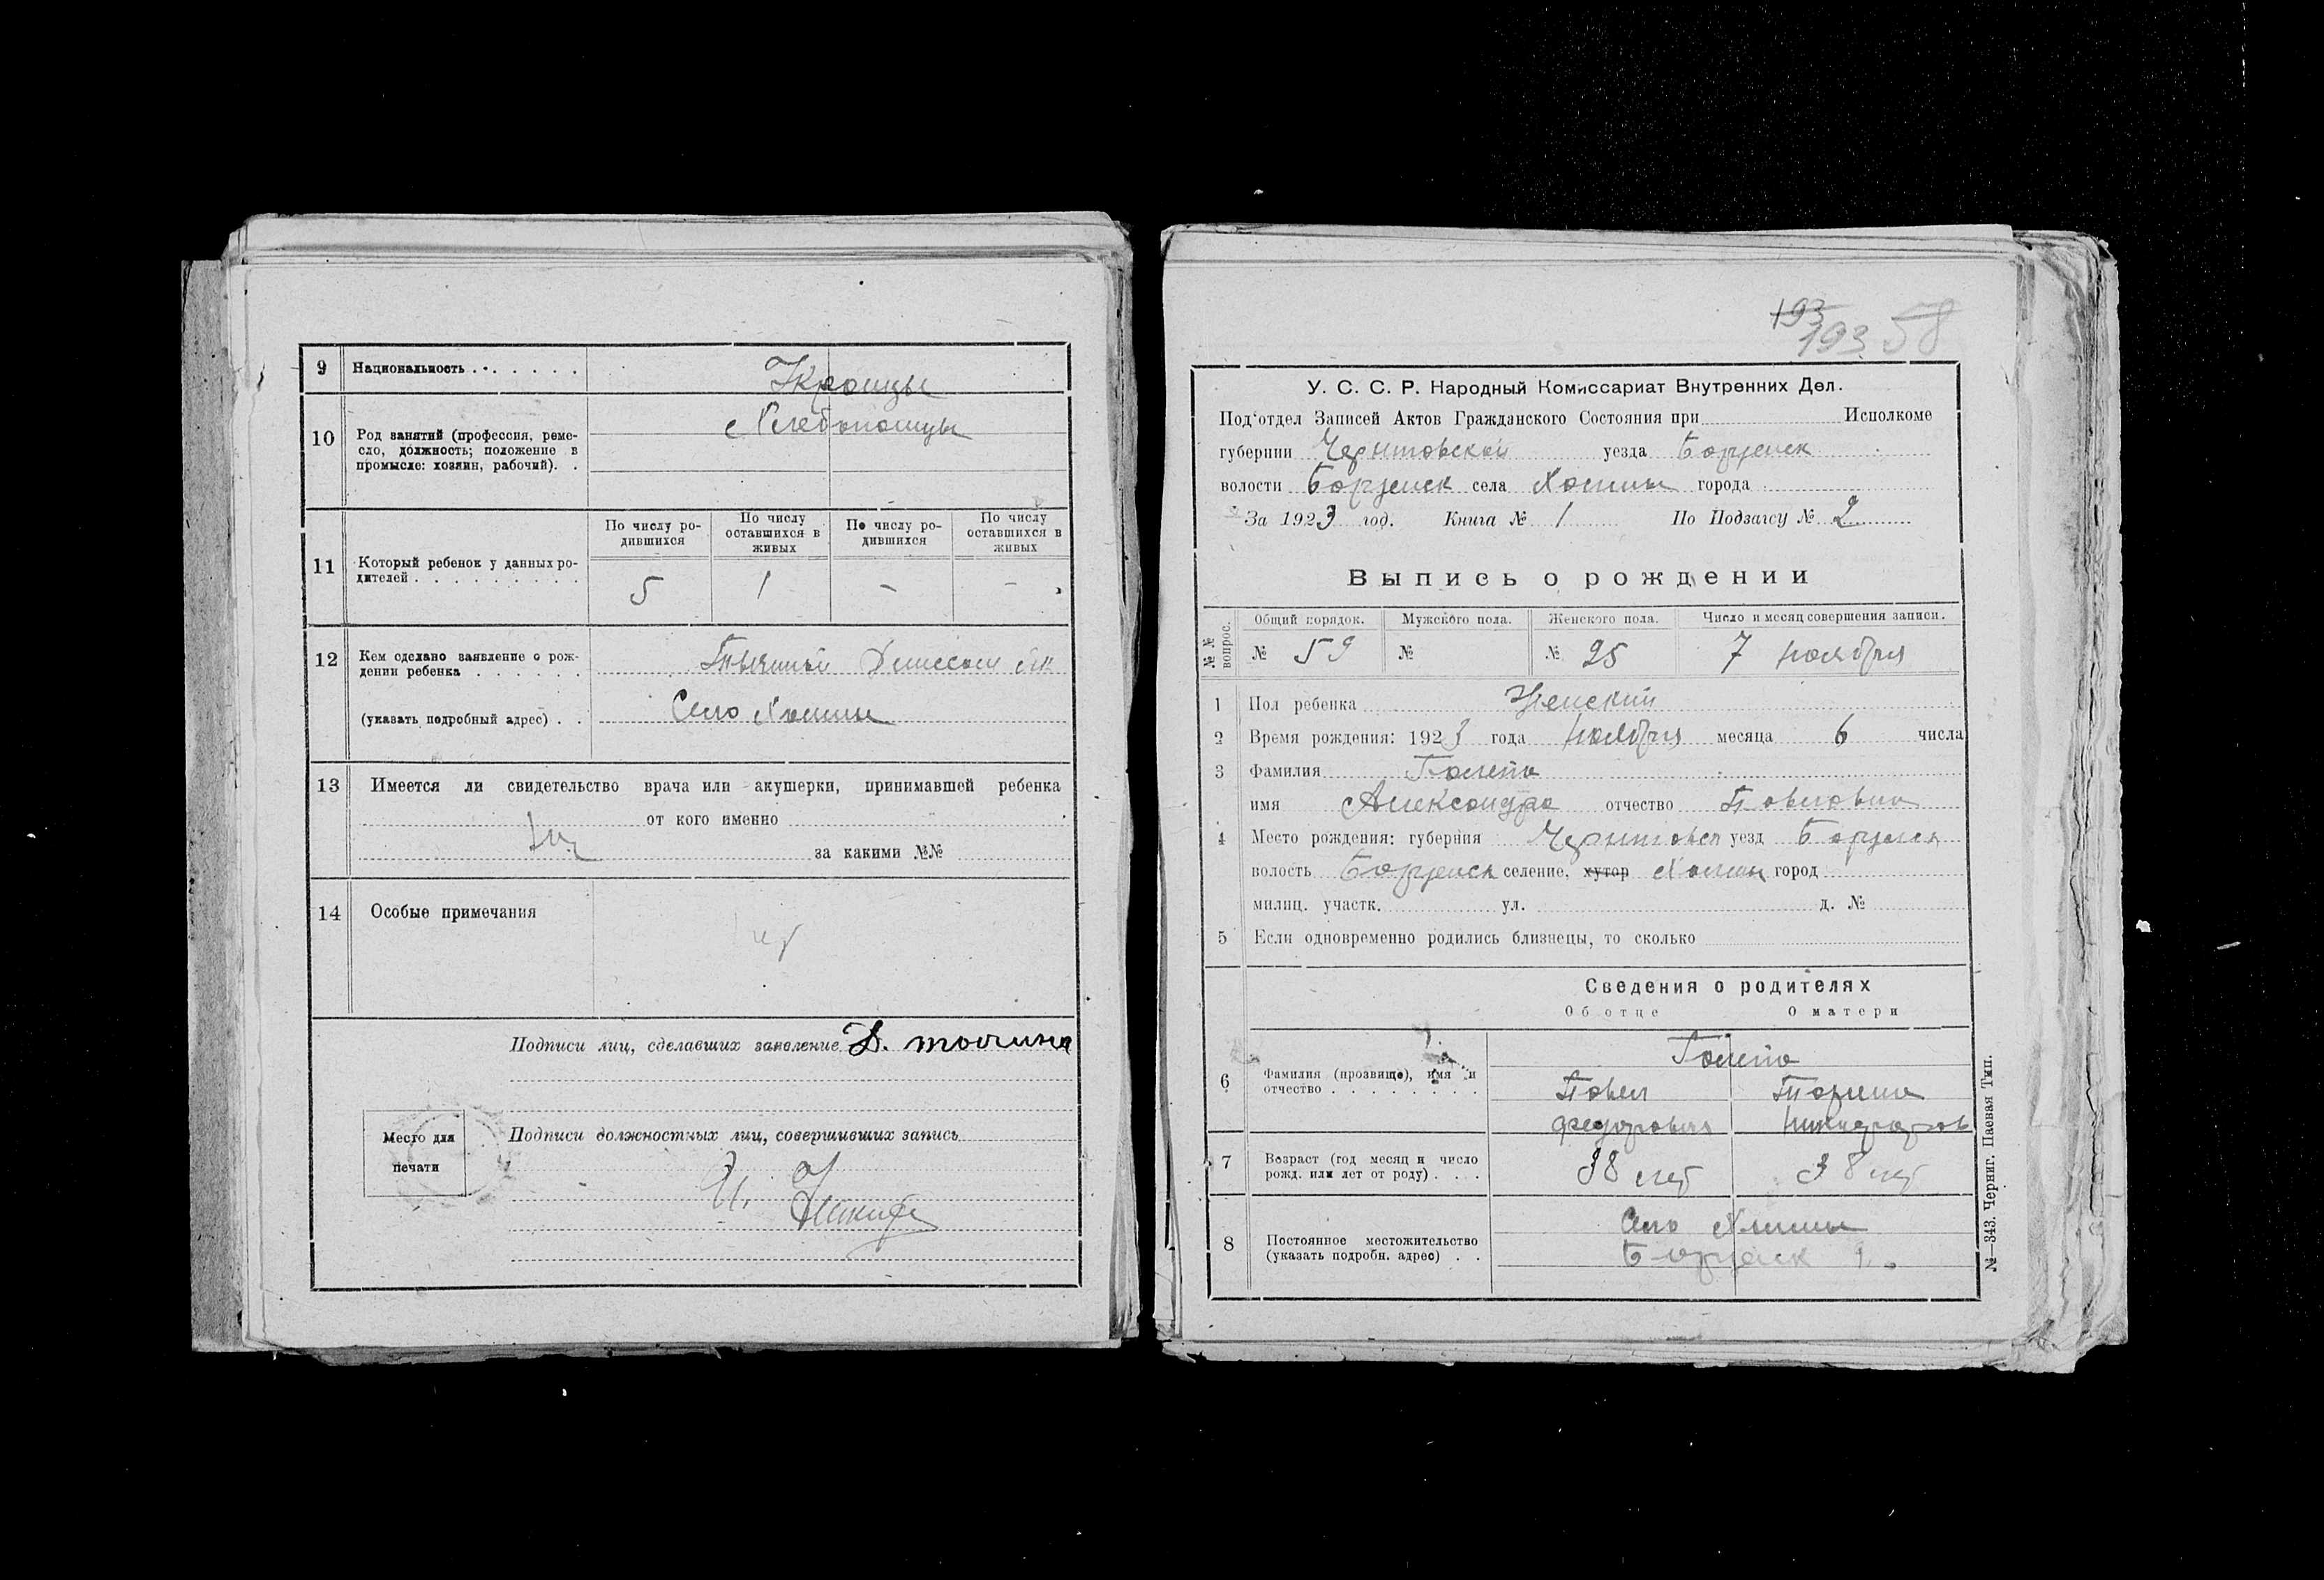 9 Национальность . . . . . . .
Украинцы
10 Род занятий (профессия, реме-
сло, должность; положение в
промысле: хозяин, рабочий). .
Хлебопашцы
11 Который ребенок у данных ро-
дителей . . . . . . . . . .
По числу ро-
дившихся
По числу
оставшихся в
живых
По числу ро-
дившихся
По числу
оставшихся в
живых
5 1 - -
12 Кем сделано заявление о рож-
дении ребенка . . . . . .
(указать подробный адрес) . .
Село
13 Имеется ли свидетельство врача или акушерки, принимавшей ребенка
от кого именно
за какими №№
14 Особые примечания
Подписи лиц, сделавших заявление Д.
Место для
печати
Подписи должностных лиц, совершивших запись
193
193 58
У. С. С. Р. Народный Комиссариат Внутренних Дел.
Под'отдел Записей Актов Гражданского Состояния при Исполкоме
губернии Черниговской уезда Борзенск
волости Борзенск села города
За 1923 год. Книга № 1 По Подзагсу № 2
Выпись о рождении
№№ вопрос.
Общий порядок. Мужского пола. Женского пола. Число и месяц совершения записи.
№ 59 № № 25 7 ноября
1 Пол ребенка Женский
2 Время рождения: 1923 года ноября месяца 6 числа
3 Фамилия
имя Александра отчество Павловна
4 Место рождения: губерния Черниговск уезд Борзенск
волость Борзенск селение, хутор город
милиц. участк. ул. д. №
5 Если одновременно родились близнецы, то сколько
Сведения о родителях
Об отце О матери
6 Фамилия (прозвище), имя и
отчество . . . . . . . .
Павел
Федорович
7 Возраст (год месяц и число
рожд. или лет от роду) . . .
38 лет 38 лет
8 Постоянное местожительство
(указать подробн. адрес) . .
Село
Борзенск
№—343. Черниг. Паевая Тип.